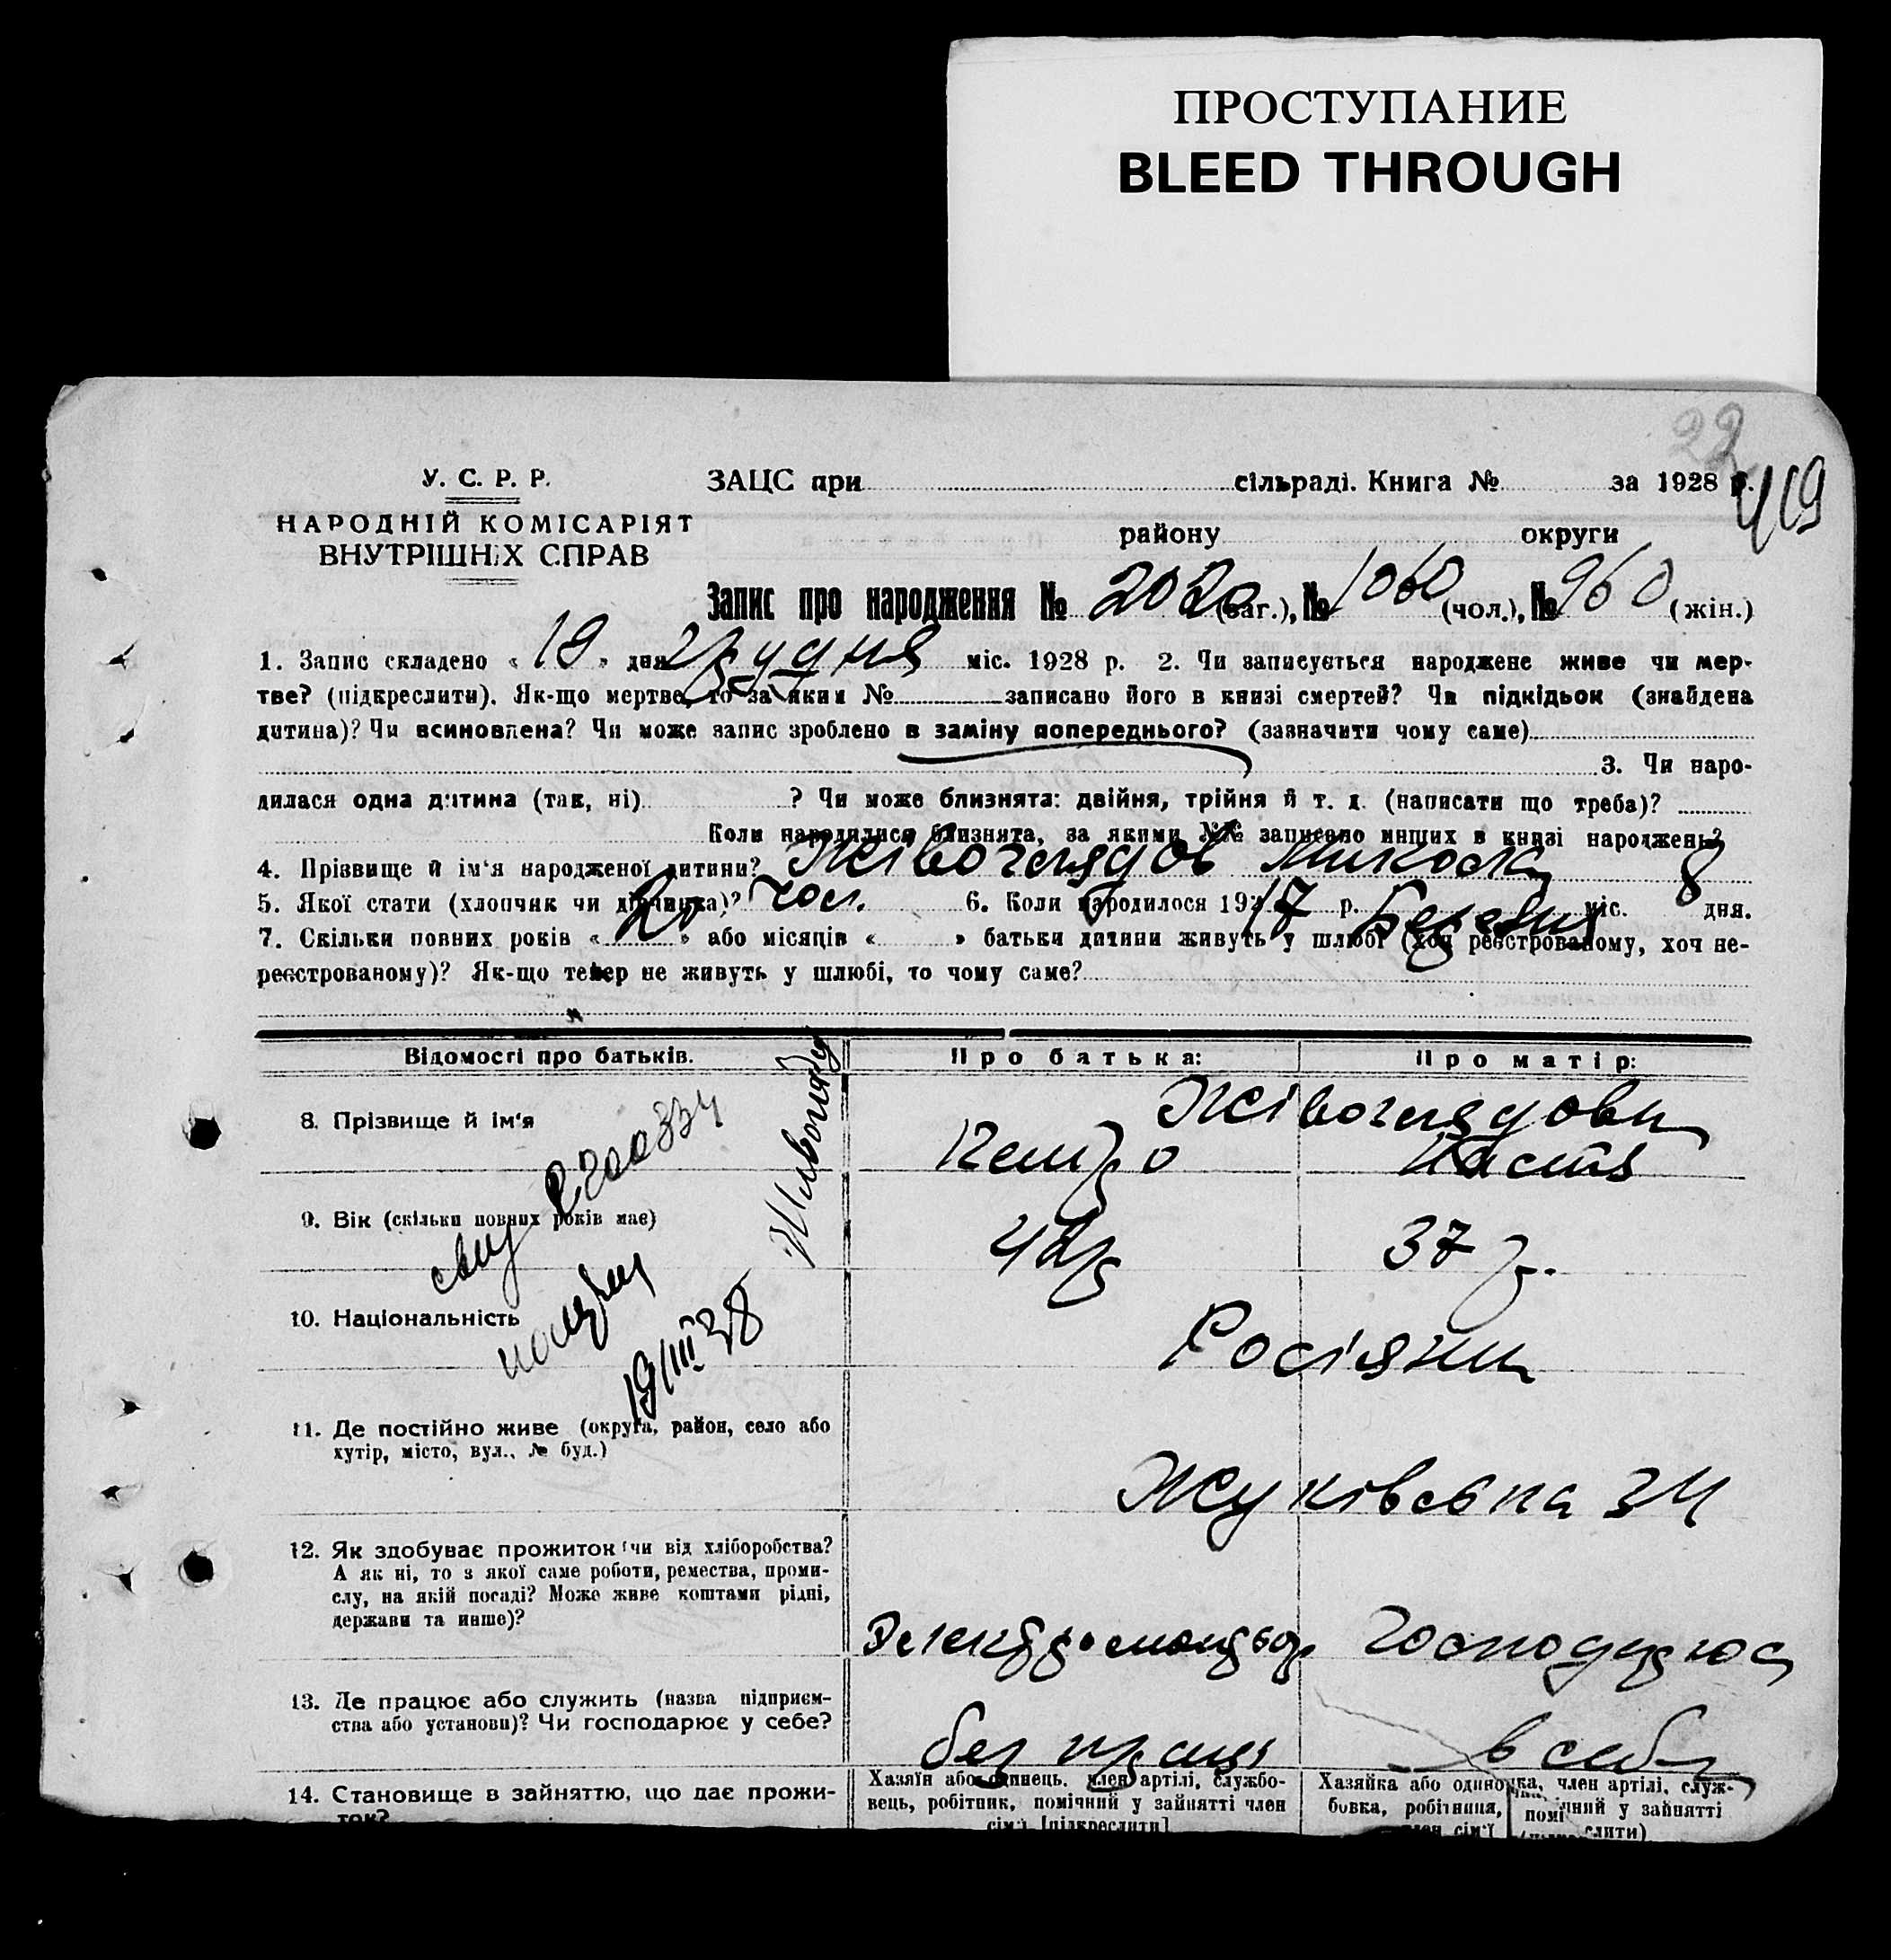 ПРОСТУПАНИЕ
BLEED THROUGH
22
419
У. С. Р. Р.
НАРОДНІЙ КОМІСАРІЯТ
ВНУТРІШНІХ СПРАВ
ЗАЦС при сільраді. Книга № за 1928 р.
району округи
Запис про народження № 2020 (заг.), № 1060 (чол.), № 960 (жін.)
1. Запис складено « 19 » дня грудня міс. 1928 р. 2. Чи записується народжене живе чи мер-
тве? (підкреслити). Як-що мертве, то за яким № записано його в книзі смертей? Чи підкідьок (знайдена
дитина)? Чи всиновлена? Чи може запис зроблено в заміну попереднього? (зазначити чому саме)
3. Чи наро-
дилася одна дитина (так, ні) ? Чи може близнята: двійня, трійня й т. д. (написати що треба)?
Коли народилися близнята, за якими №№ записано инших в книзі народжень?
4. Прізвище й ім'я народженої дитини? Живоглядов Микола
5. Якої стати (хлопчик чи дівчинка)? чол. 6. Коли народилося 1917 р. Березня міс. 8 дня.
7. Скільки повних років « 20 » або місяців « » батьки дитини живуть у шлюбі (хоч реєстрованому, хоч не-
реєстрованому)? Як-що тепер не живуть у шлюбі, то чому саме?
Відомості про батьків. Про батька: Про матір:
8. Прізвище й ім'я Живоглядови
Петро Настя
9. Вік (скільки повних років має) 42 р 37 р.
10. Національність Росіяни
11. Де постійно живе (округа, район, село або
хутір, місто, вул., № буд.)
Жуківська 34
12. Як здобуває прожиток (чи від хліборобства?
А як ні, то з якої саме роботи, ремества, проми-
слу, на якій посаді? Може живе коштами рідні,
держави та инше)?
Електромонтьор Господарює
13. Де працює або служить (назва підприєм-
ства або установи)? Чи господарює у себе?
без праці в себе
14. Становище в зайняттю, що дає прожи-
ток?
Хазяїн або одинець, член артілі, службо-
вець, робітник, помічний у зайнятті член
сім'ї [підкреслити]
Хазяйка або одиночка, член артілі, служ-
бовка, робітниця, помічний у зайнятті
член сім'ї
19/III 38